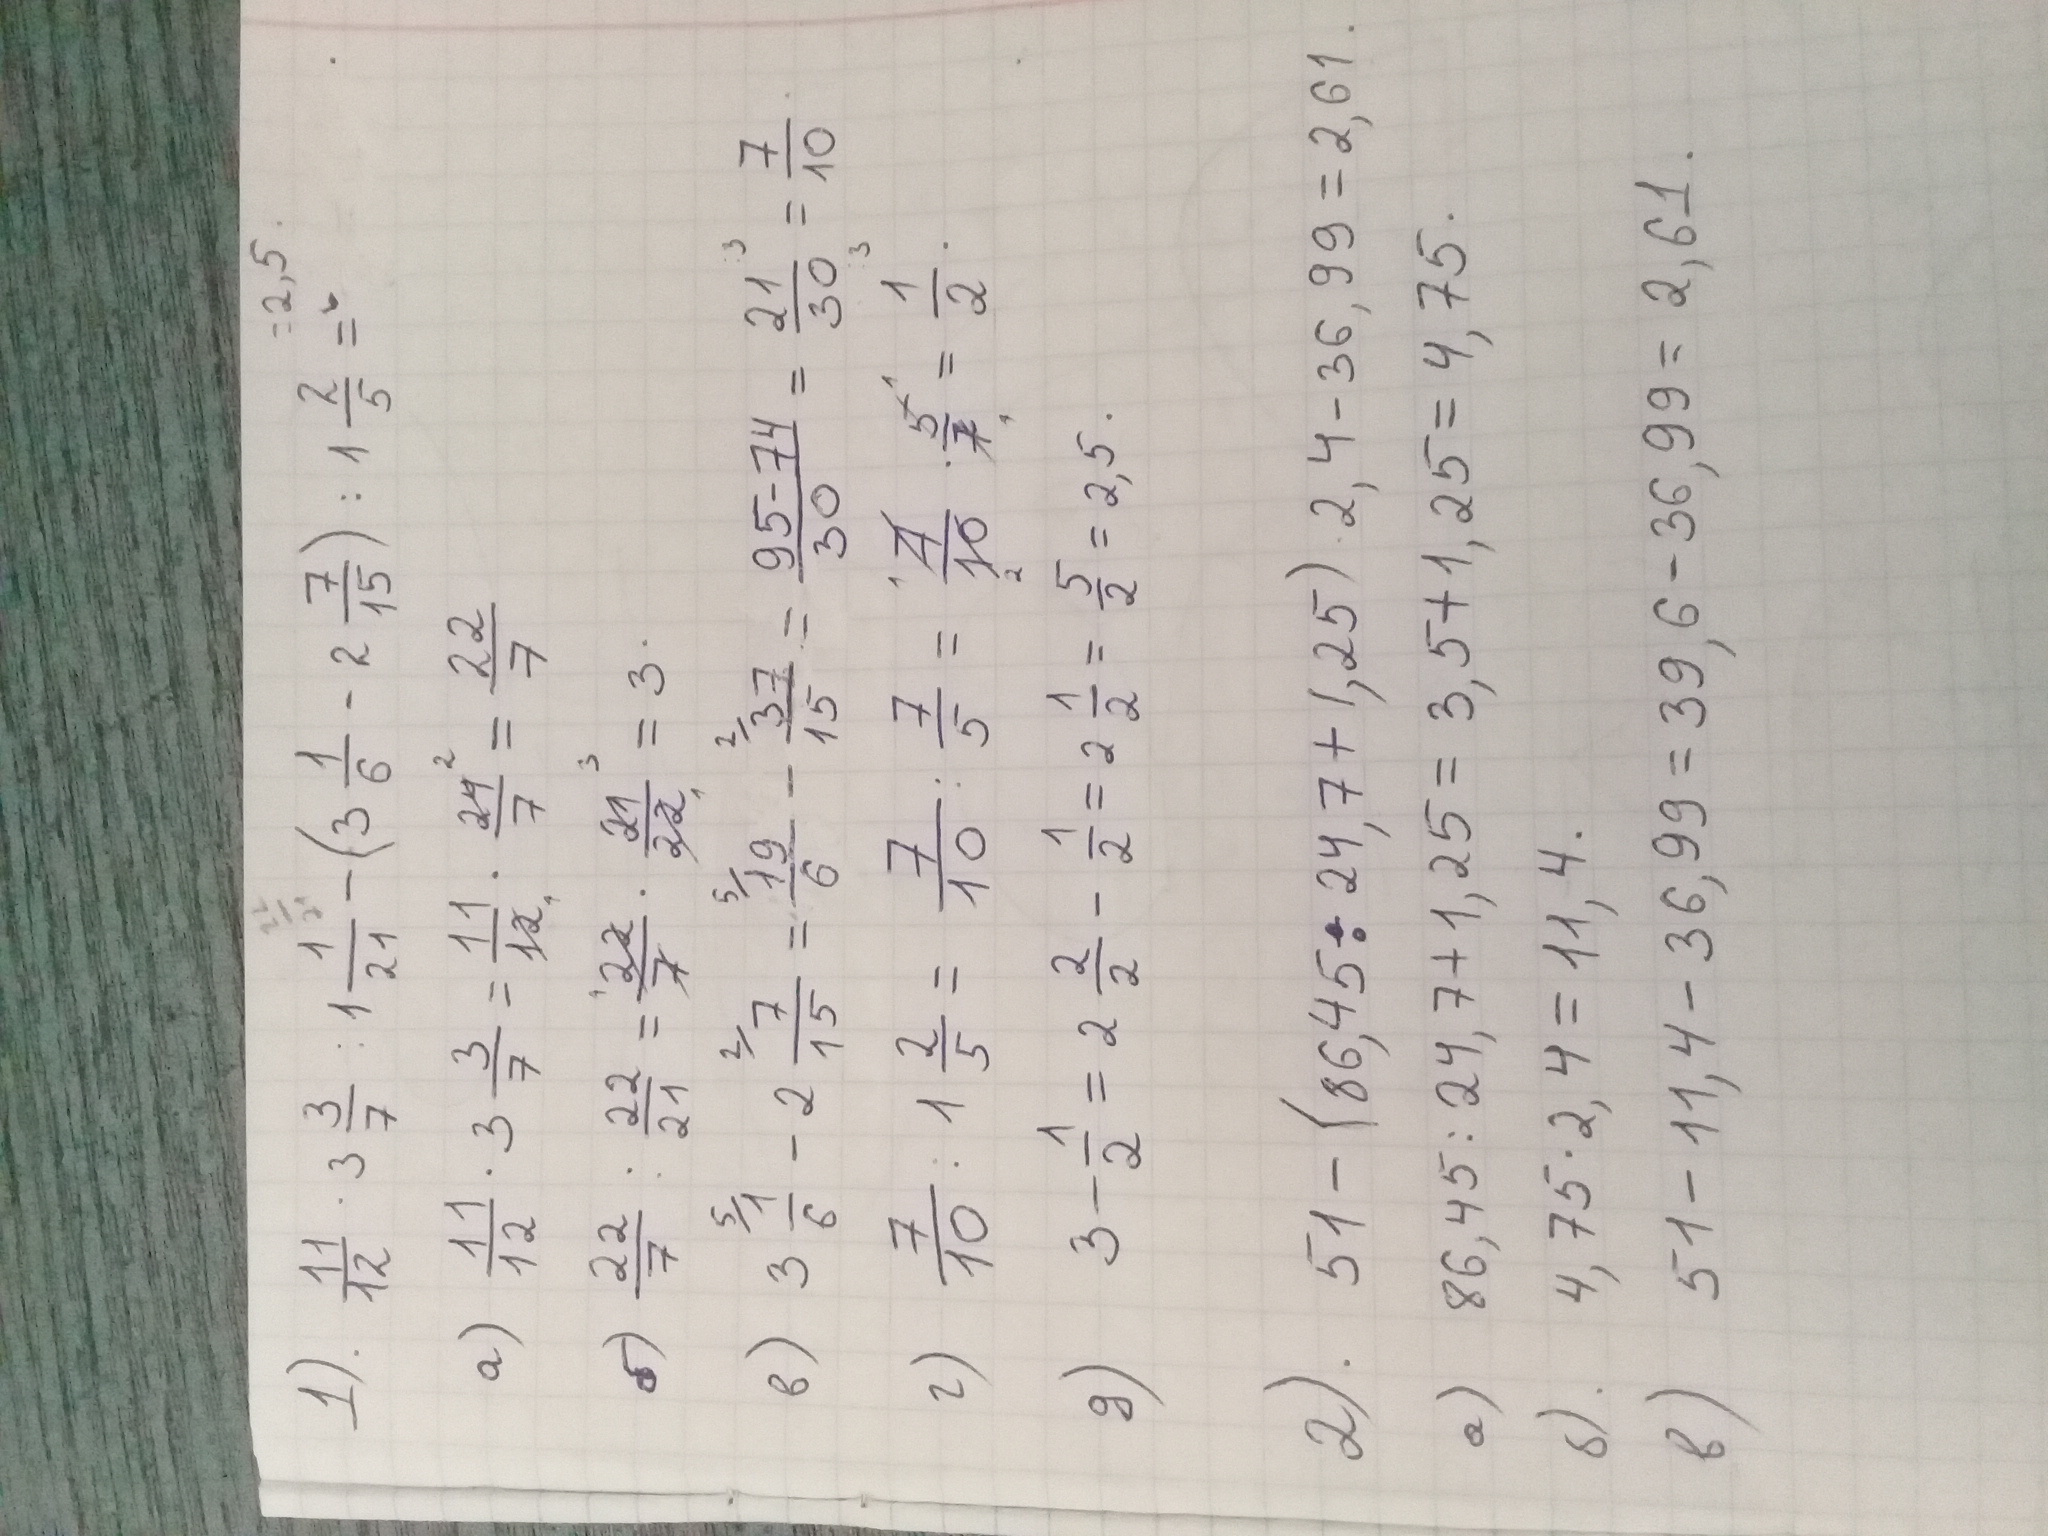 1). 11/12 · 3 3/7 : 1 1/21 - (3 1/6 - 2 7/15) : 1 2/5 = =2,5.
а) 11/12 · 3 3/7 = 11/12 · 24/7 = 22/7
б) 22/7 : 22/21 = 22/7 · 21/22 = 3.
в) 3 1/6 - 2 7/15 = 19/6 - 37/15 = 95-74/30 = 21/30 = 7/10.
г) 7/10 : 1 2/5 = 7/10 : 7/5 = 7/10 · 5/7 = 1/2.
д) 3 - 1/2 = 2 2/2 - 1/2 = 2 1/2 = 5/2 = 2,5.
2). 51 - (86,45 : 24,7 + 1,25) · 2,4 - 36,99 = 2,61.
а) 86,45 : 24,7 + 1,25 = 3,5 + 1,25 = 4,75.
б). 4,75 · 2,4 = 11,4.
в) 51 - 11,4 - 36,99 = 39,6 - 36,99 = 2,61.